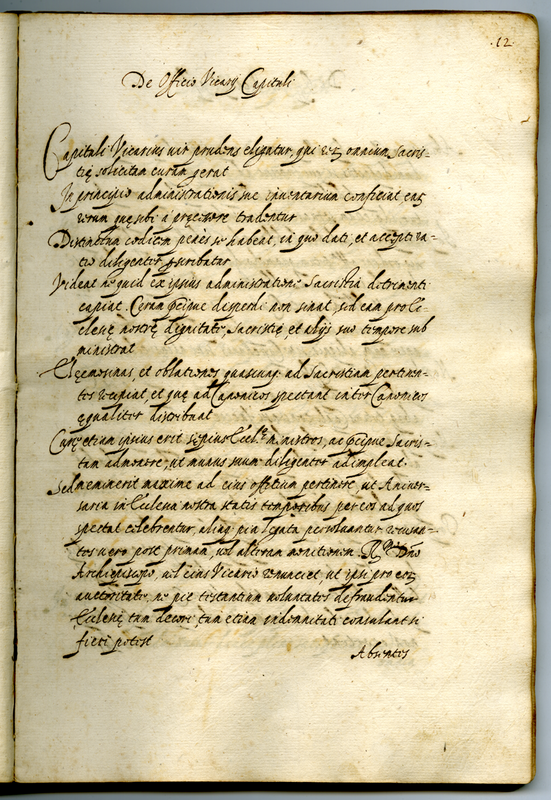 .12.
De Officio Vicarij Capituli
Capituli Vicarius vir prudens eligatur, qui omnium Sacris-
tię solicitam curam gerat
In principio administrationis suę inventarium conficiat ear
rerum quę sibi a pręcessore tradentur
Distinctum codicem penes se habeat, in quo dati, et accepti ra-
tio diligenter scribatur
Videat ne quid ex ipsius administratione Sacristia detrimenti
capiat. Ceram pcipue disperdi non sinat, sed eam pro Ec-
clesię nostrę dignitate, Sacristię, et alijs suo tempore sub
ministrat
Elęemosinas, et oblationes quascunq ad Sacristiam pertinen-
tes recipiat, et quę ad Canonicos spectant inter Canonicos
ęqualiter distribuat
Curę etiam ipsius erit sępius Eccl.ę ministros, ac pcipue Sacris-
tam admonere, ut munus suum diligenter adimpleat.
Sed meminerit maxime ad eius officium pertinere, ut Aniver-
saria in Ecclesia nostra statis temporibus per eos ad quos
spectat celebrentur, aliaq pia legata persolvantur, recusan-
tes vero post primam, vel alteram monitionem R.mo Dno
Archiepiscopo, vel eius Vicario renunciet ut ipsi pro eor
auctoritate, ne pię testantium voluntates defraudentur
Ecclesię tam decori, tam etiam indemnitati consulant si
fieri potest
Absentes